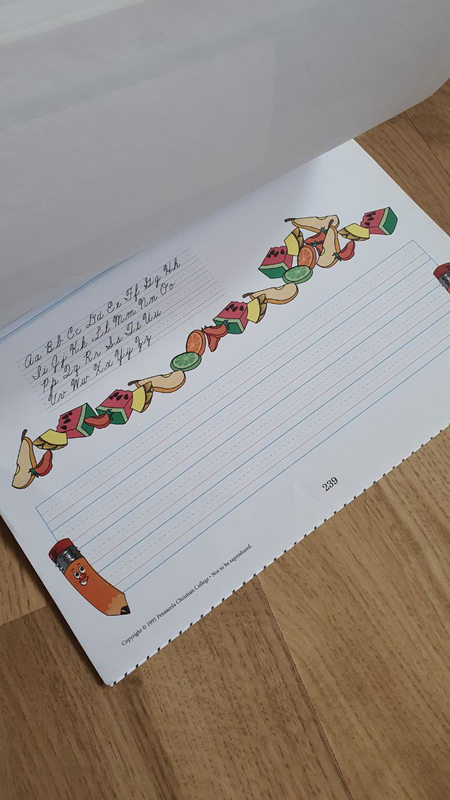 Aa Bb Cc Dd Ee Ff Gg Hh
Ii Jj Kk Ll Mm Nn Oo
Pp Qq Rr Ss Tt Uu
Vv Ww Xx Yy Zz
239
Copyright © 1995 Pensacola Christian College • Not to be reproduced.